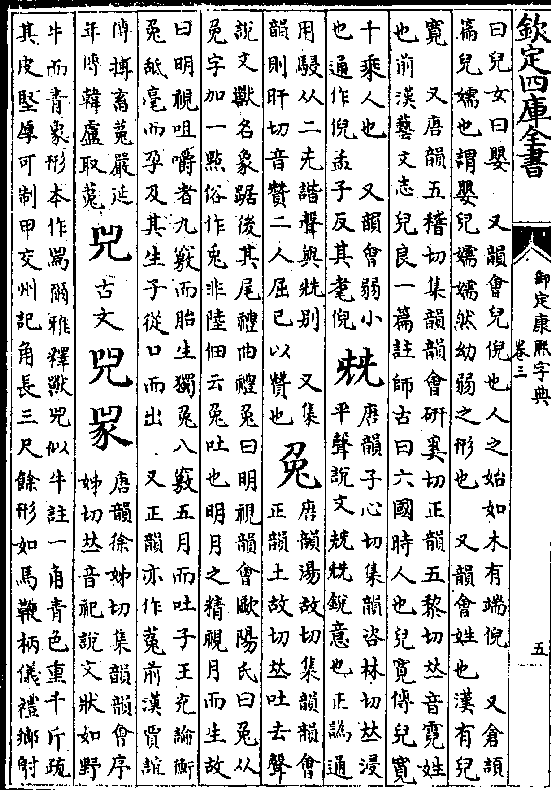 欽定四庫全書
御定康熙字典
卷三
五
曰兒女曰嬰 又韻會兒倪也人之始如木有端倪 又倉頡
篇兒嬬也謂嬰兒嬬嬬然幼弱之形也 又韻會姓也漢有兒
寛 又唐韻五稽切集韻韻會硏奚切正韻五黎切𠀤音霓姓
也前漢藝文志兒良一篇註師古曰六國時人也兒寛傳兒寛
千乘人也 又韻會弱小
也通作倪孟子反其耄倪
兓
唐韻子心切集韻咨林切𠀤浸
平聲說文兓兓銳意也正譌通
用駸从二旡諧聲與兟別 又集
韻則旰切音贊二人屈已以贊也
兔
唐韻湯故切集韻韻會
正韻土故切𠀤吐去聲
說文獸名象踞後其尾禮曲禮兔曰明視韻會歐陽氏曰兔从
兔字加一點俗作兎非陸佃云兔吐也明月之精視月而生故
曰明視咀嚼者九竅而胎生獨兔八竅五月而吐子王充論衡
兔舐毫而孕及其生子從口而出 又正韻亦作菟前漢賈誼
傳搏畜菟嚴延
年傳韓盧取菟
兕
古文
唐韻徐姊切集韻韻會序
姊切𠀤音祀說文狀如野
牛而青象形本作爾雅釋獸兕似牛註一角青色重千斤疏
其皮堅厚可制甲交州記角長三尺餘形如馬鞭柄儀禮鄉射